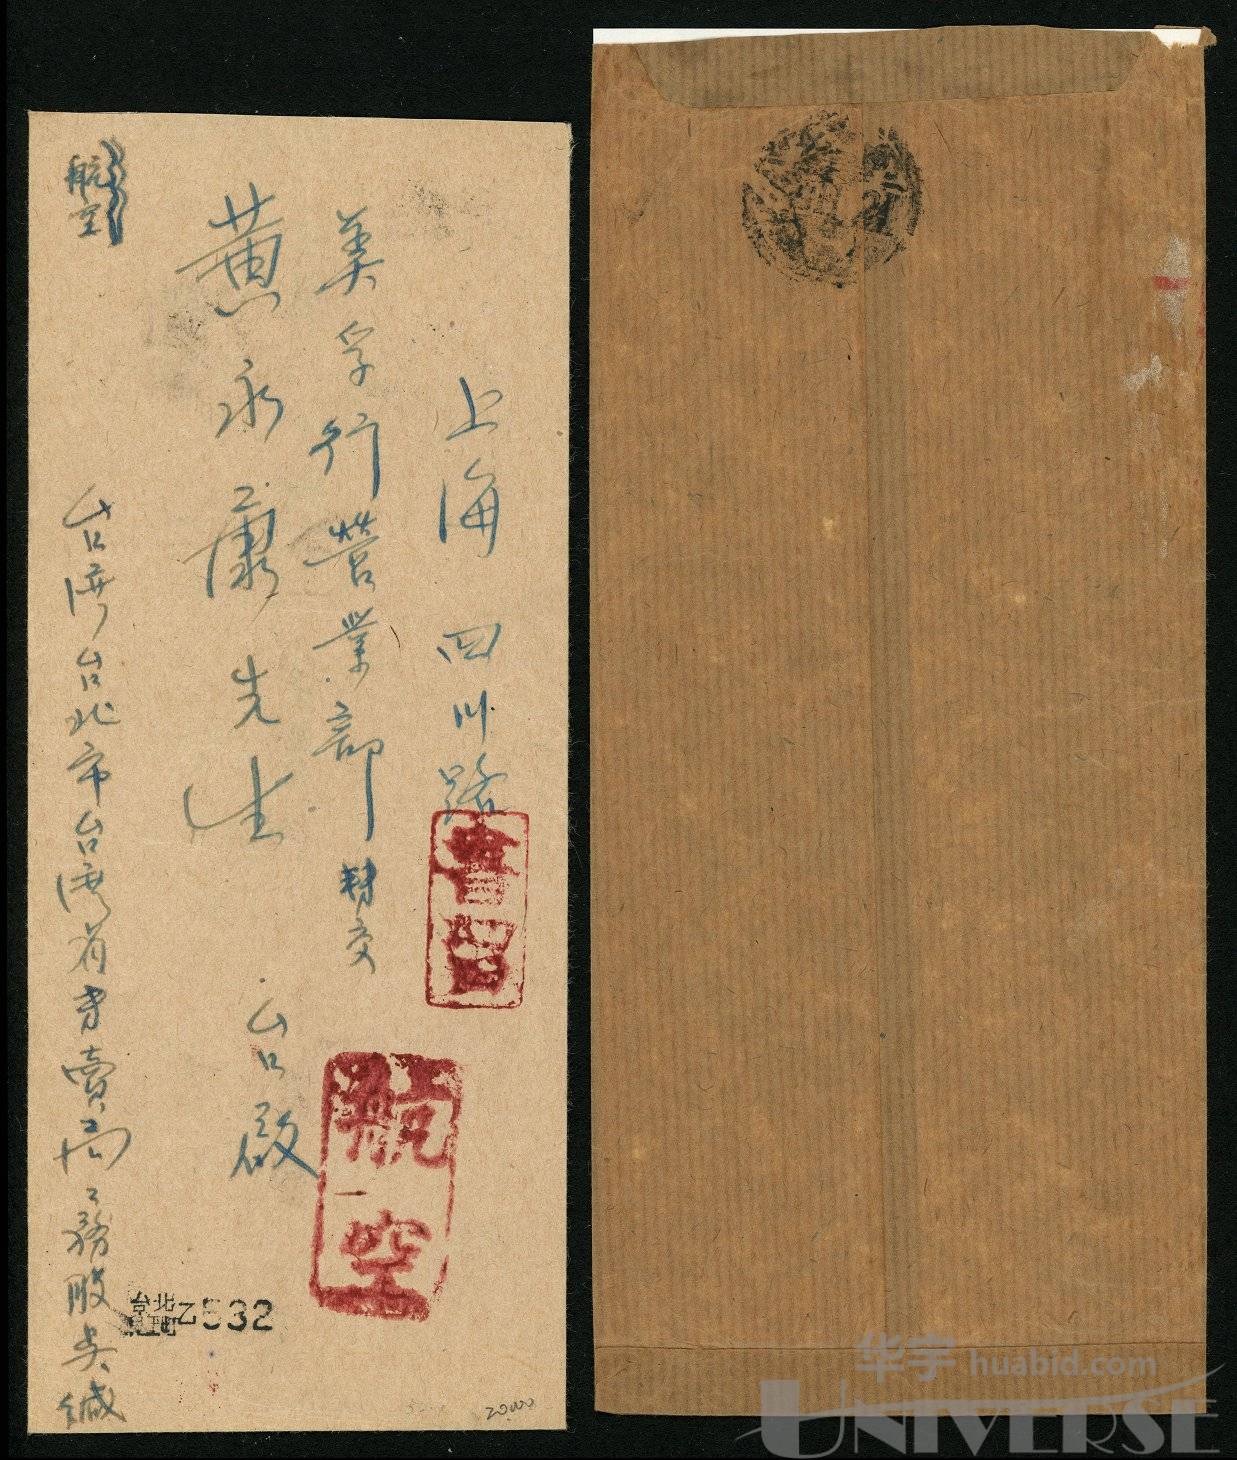 上海 四川路
美孚行營業部轉交
黃永康先生 台啟
航空
台湾台北市台湾省专賣局工務股吳緘
書留
航空
台北
乙532
20,000
华宇 huabid.com
UNIVERSE